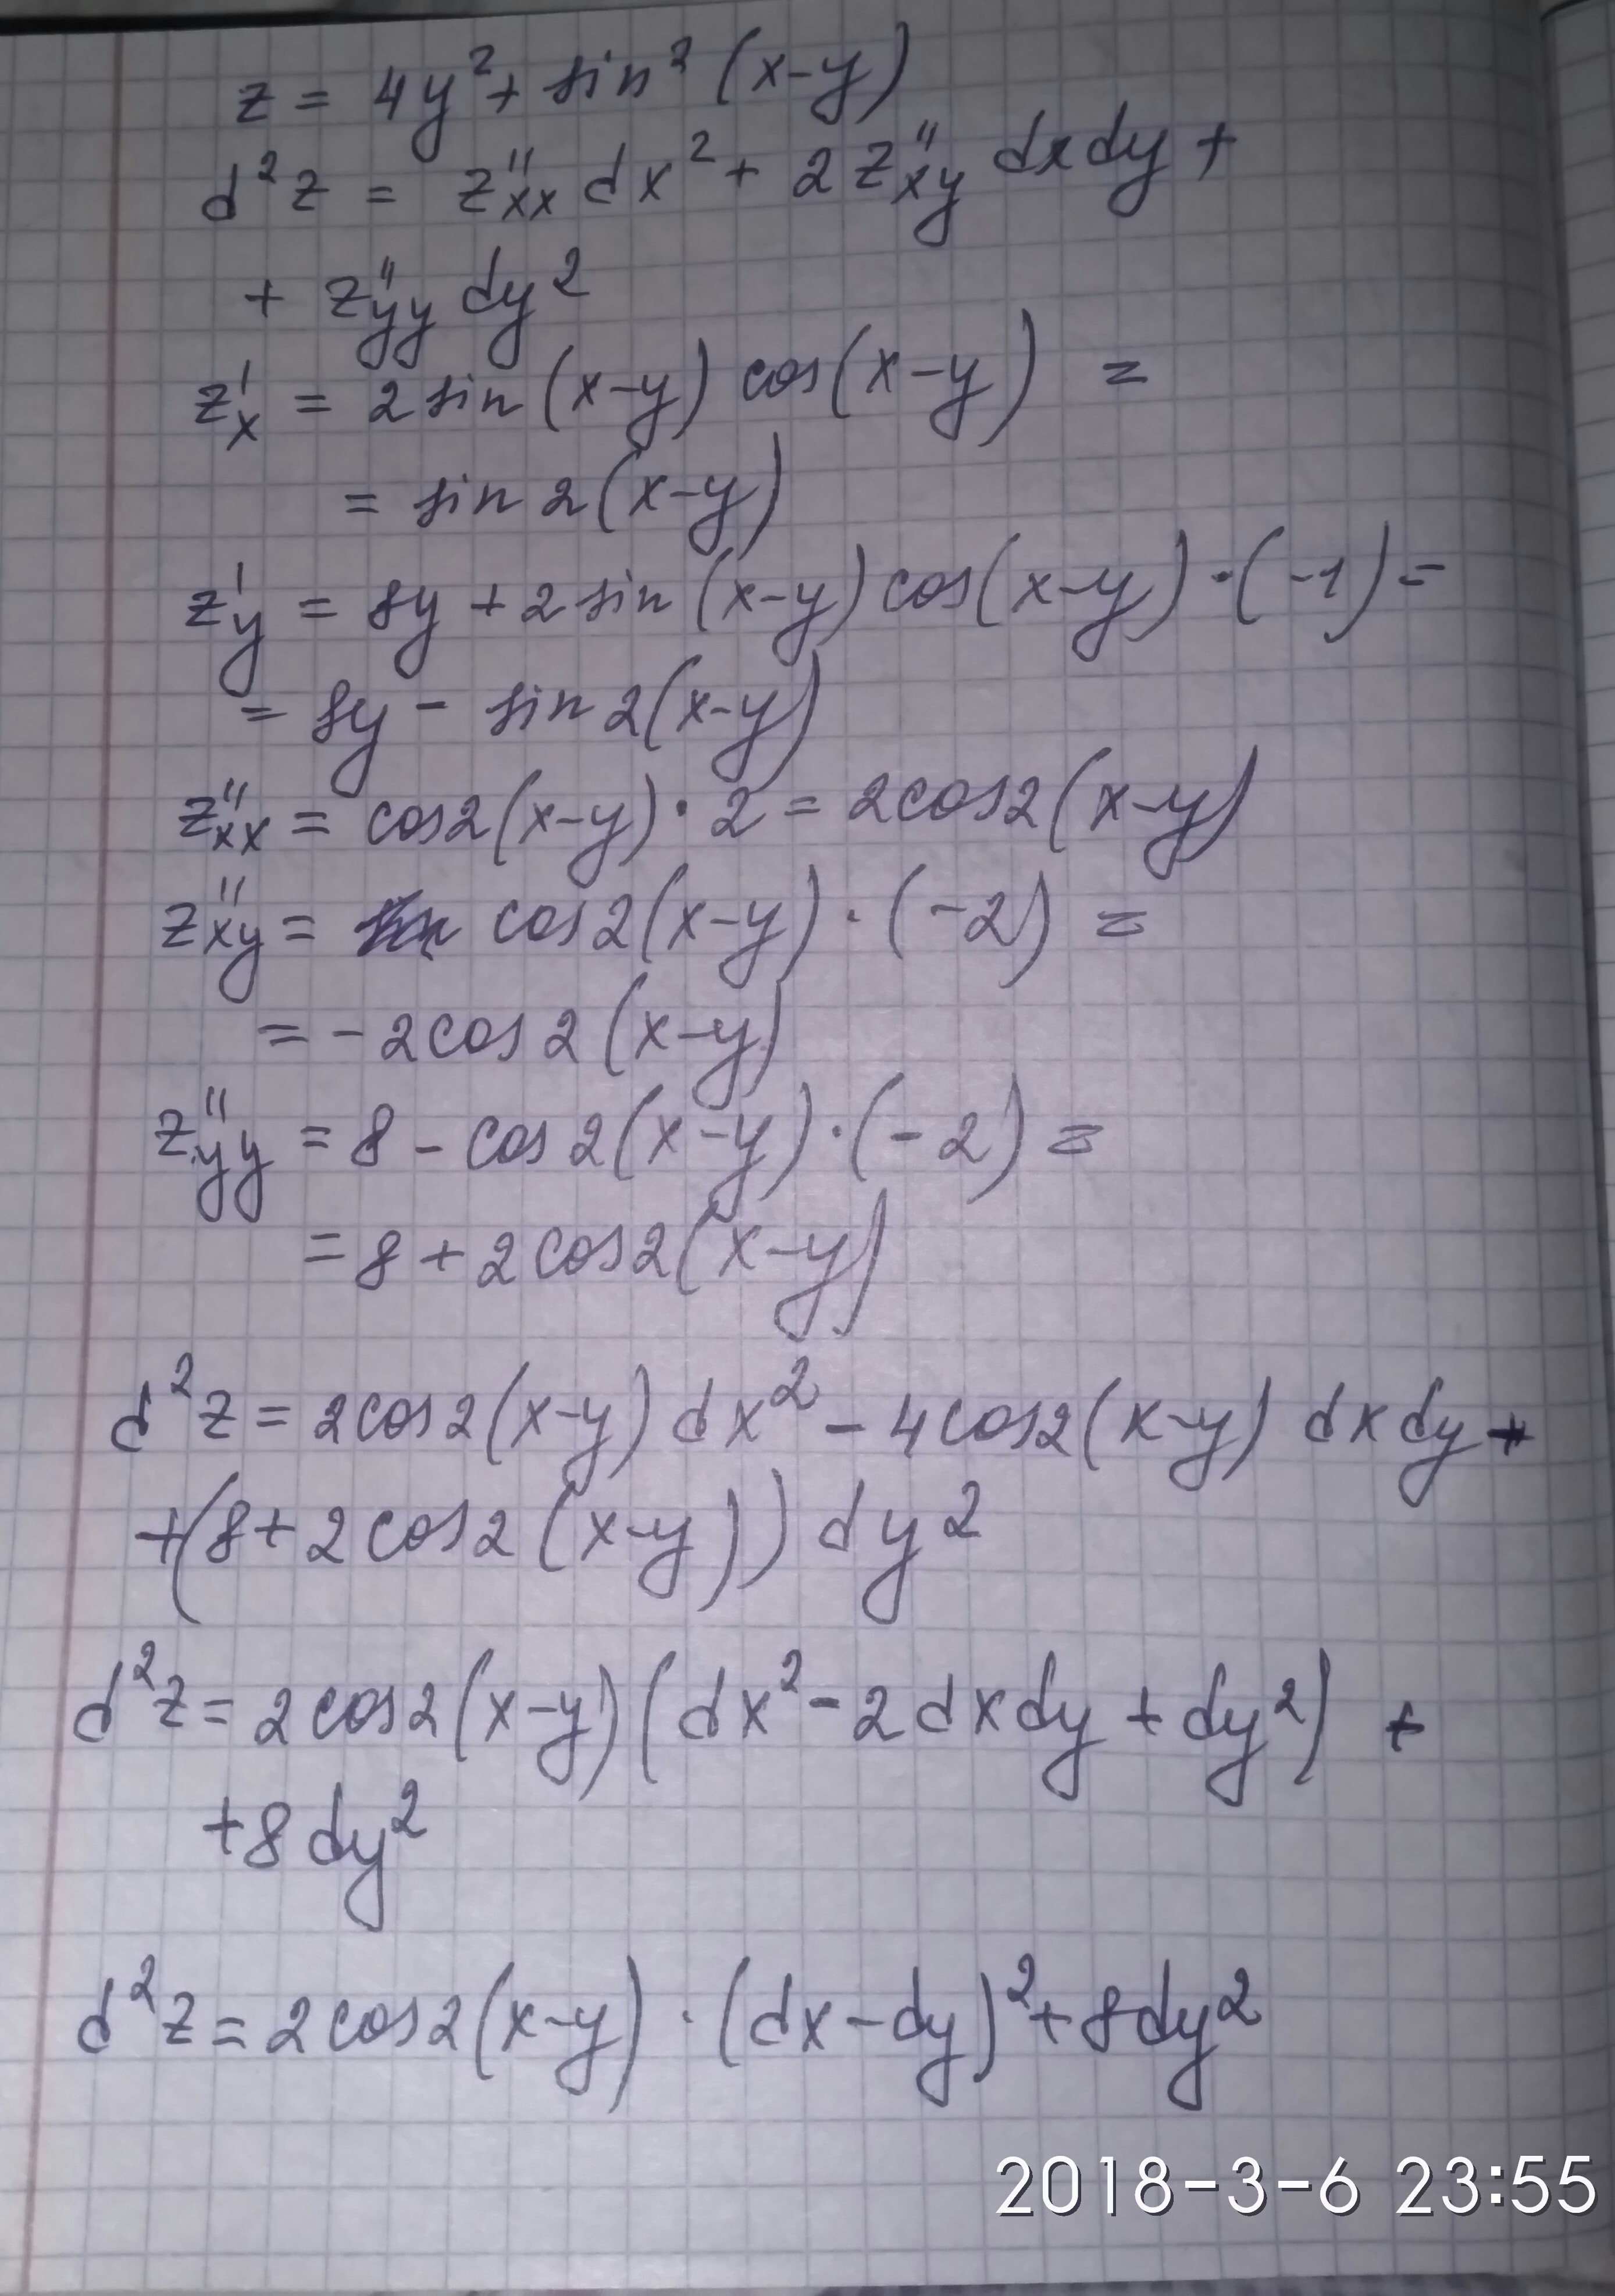 z = 4y² + sin² (x-y)
d²z = z''xx dx² + 2 z''xy dxdy +
+ z''yy dy²
z'x = 2 sin (x-y) cos (x-y) =
= sin 2(x-y)
z'y = 8y + 2 sin (x-y) cos(x-y) · (-1) =
= 8y - sin 2(x-y)
z''xx = cos2(x-y) · 2 = 2cos2(x-y)
z''xy = cos2(x-y) · (-2) =
= -2cos2(x-y)
z''yy = 8 - cos2(x-y) · (-2) =
= 8 + 2cos2(x-y)
d²z = 2cos2(x-y) dx² - 4cos2(x-y) dxdy +
+(8+2cos2(x-y)) dy²
d²z = 2cos2(x-y)(dx² - 2dxdy + dy²) +
+8dy²
d²z = 2cos2(x-y) · (dx-dy)² + 8dy²
2018-3-6 23:55